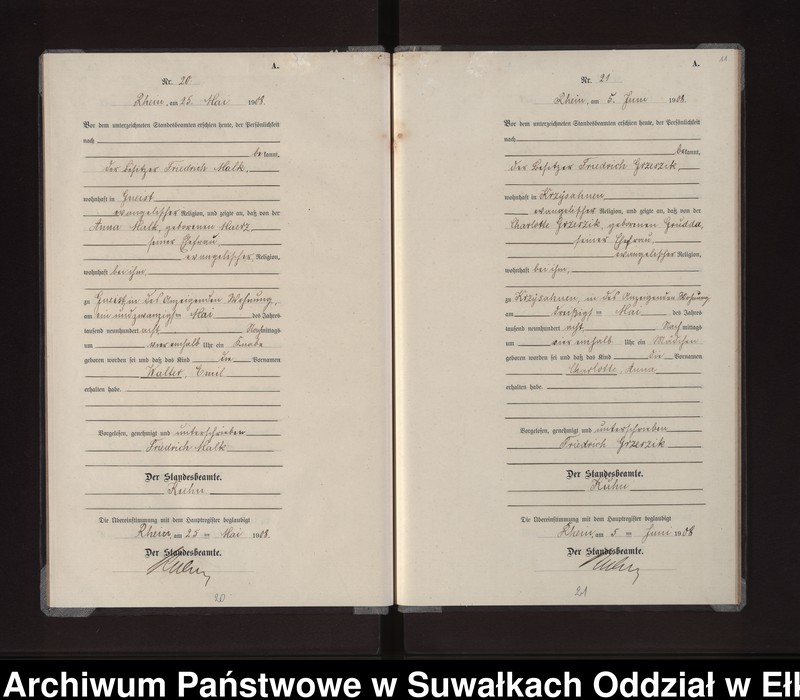 A.
Nr. 20
Rhein, am 25. Mai 1908.
Vor dem unterzeichneten Standesbeamten erschien heute, der Persönlichkeit
nach
bekannt,
der Besitzer Friedrich Malk,
wohnhaft in Gneist
evangelischer Religion, und zeigte an, daß von der
Anna Malk, geborenen
seiner Ehefrau
evangelischer Religion,
wohnhaft bei ihm,
zu Gneist, in des Anzeigenden Wohnung,
am einundzwanzigsten Mai des Jahres
tausend neunhundert acht Nachmittags
um vier einhalb Uhr ein Knabe
geboren worden sei und daß das Kind die Vornamen
Walter, Emil
erhalten habe.
Vorgelesen, genehmigt und unterschrieben
Friedrich Malk
Der Standesbeamte.
Kuhn
Die Übereinstimmung mit dem Hauptregister beglaubigt
Rhein, am 25 ten Mai 1908.
Der Standesbeamte.
Kuhn
20
A.
Nr. 21
Rhein, am 5. Juni 1908.
Vor dem unterzeichneten Standesbeamten erschien heute, der Persönlichkeit
nach
bekannt,
der Besitzer Friedrich Grzerzik,
wohnhaft in Krzysahnen
evangelischer Religion, und zeigte an, daß von der
Charlotte Grzerzik, geborenen Grudda,
seiner Ehefrau
evangelischer Religion,
wohnhaft bei ihm,
zu Krzysahnen, in des Anzeigenden Wohnung
am dreißigsten Mai des Jahres
tausend neunhundert acht Nachmittags
um vier einhalb Uhr ein Mädchen
geboren worden sei und daß das Kind die Vornamen
Charlotte, Anna
erhalten habe.
Vorgelesen, genehmigt und unterschrieben
Friedrich Grzerzik
Der Standesbeamte.
Kuhn
Die Übereinstimmung mit dem Hauptregister beglaubigt
Rhein, am 5 ten Juni 1908
Der Standesbeamte.
Kuhn
21
Archiwum Państwowe w Suwałkach Oddział w Eł